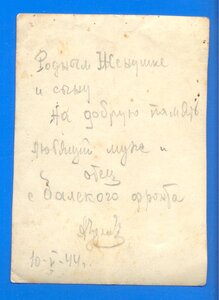 Родным Женушке
и сыну
На добрую память
Любящий муж и
отец
с Валского фронта
10-V-44г.